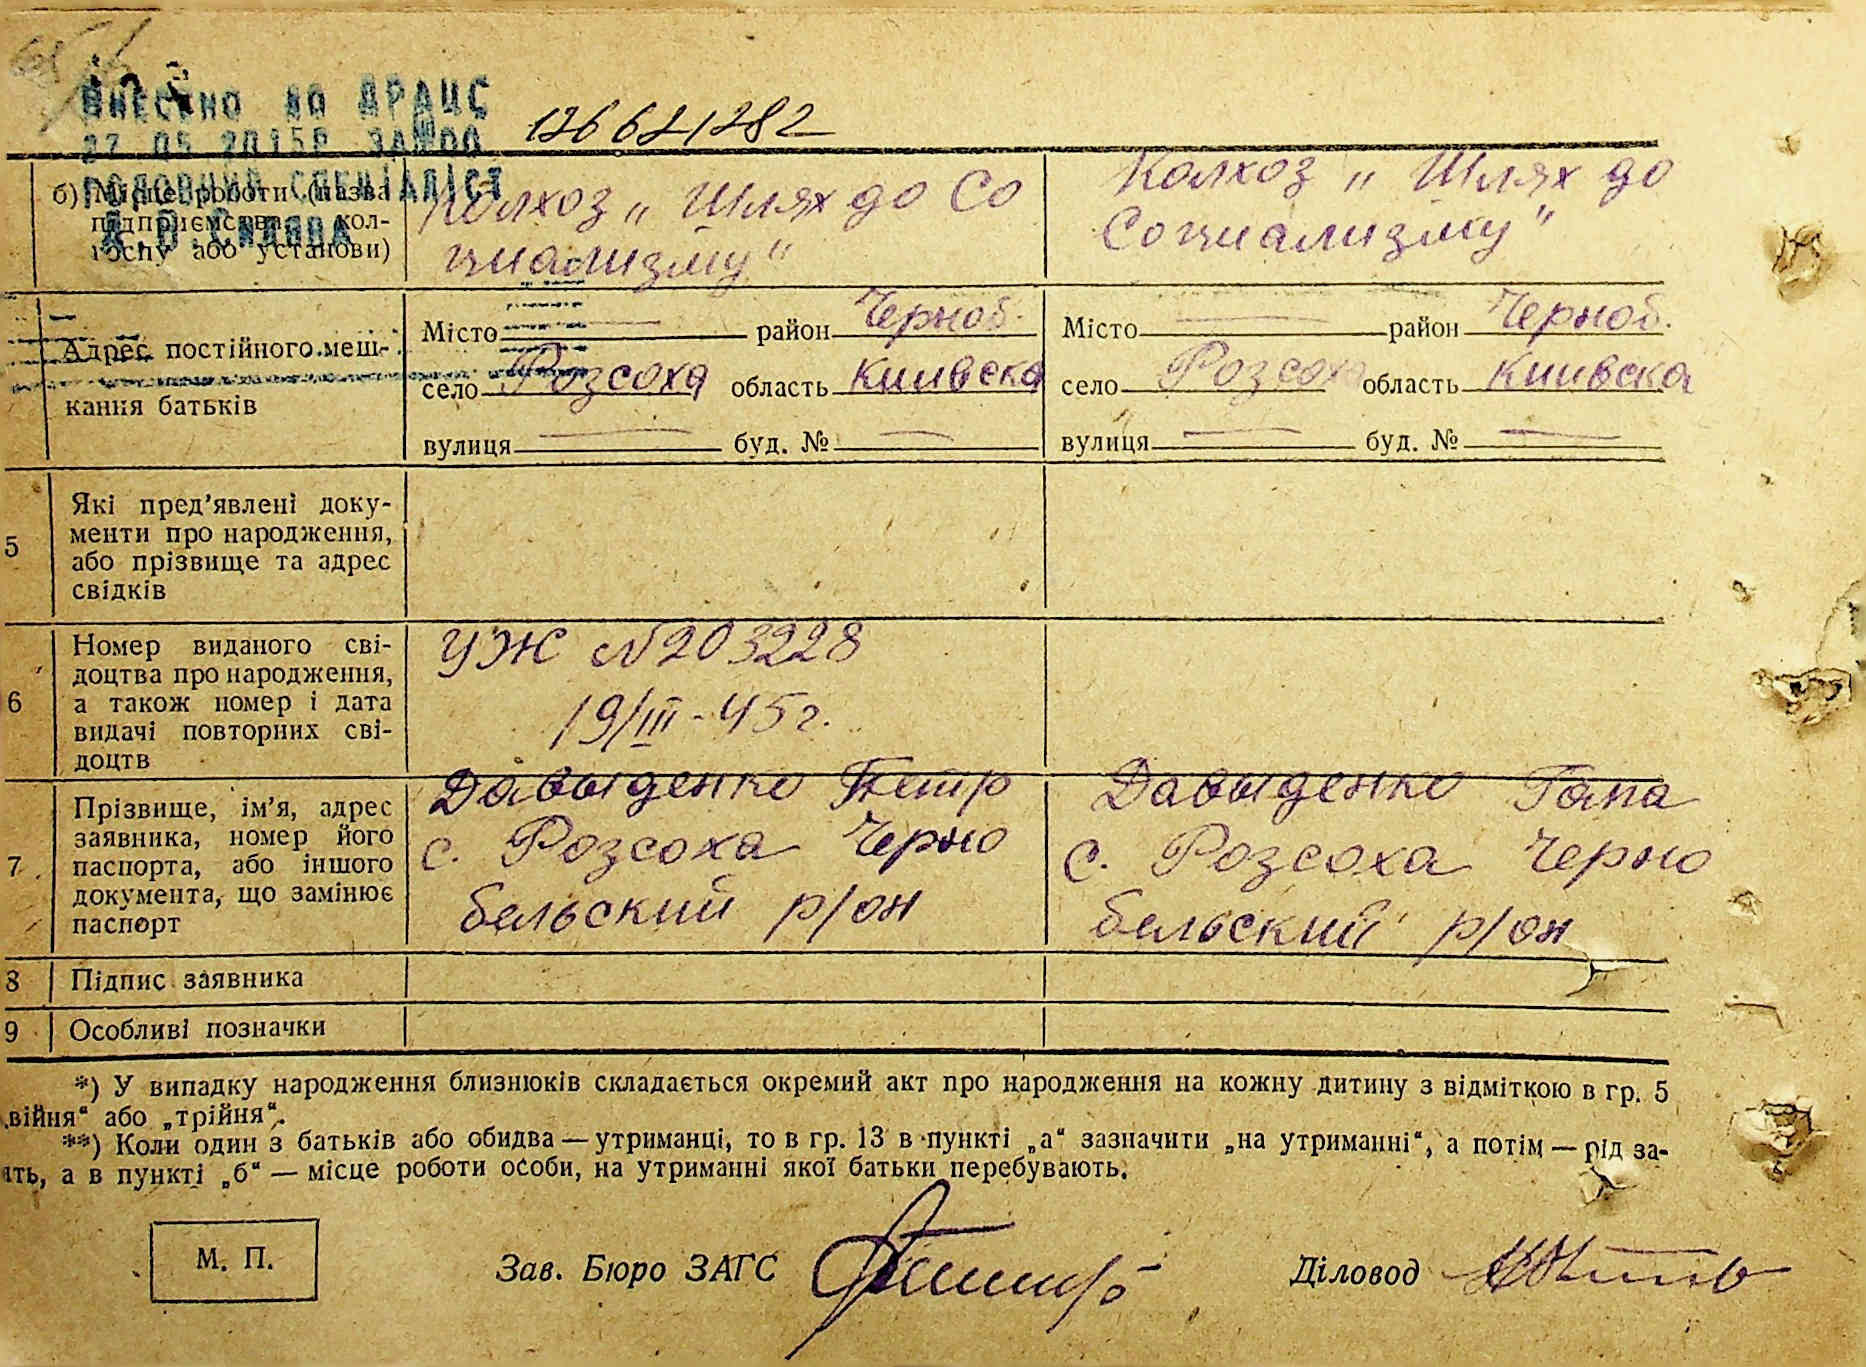 ВНЕСЕНО ДО ДРАЦС
27 05 2015Р.
ГОЛОВНИЙ СПЕЦІАЛІСТ
12662/282
б) Місце роботи (назва
підприємства, кол-
госпу або установи)
Колхоз „Шлях до Со
циализму"
Колхоз „Шлях до
Социализму"
Адрес постійного меш-
кання батьків
Місто район Черноб.
село Розсоха область Киивска
вулиця буд. №
Місто район Черноб.
село Розсоха область Киивска
вулиця буд. №
5
Які пред’явлені доку-
менти про народження,
або прізвище та адрес
свідків
6
Номер виданого сві-
доцтва про народження,
а також номер і дата
видачі повторних сві-
доцтв
УЖ №203228
19/III-45г.
7
Прізвище, ім’я, адрес
заявника, номер його
паспорта, або іншого
документа, що замінює
паспорт
Давыденко Петр
с. Розсоха Черно
бельский р/он
Давыденко Гапа
с. Розсоха Черно
бельский р/он
8 Підпис заявника
9 Особливі позначки
*) У випадку народження близнюків складається окремий акт про народження на кожну дитину з відміткою в гр. 5
війня“ або „трійня“.
**) Коли один з батьків або обидва — утриманці, то в гр. 13 в пункті „а“ зазначити „на утриманні“, а потім — рід за-
ять, а в пункті „б“ — місце роботи особи, на утриманні якої батьки перебувають.
М. П.
Зав. Бюро ЗАГС
Діловод